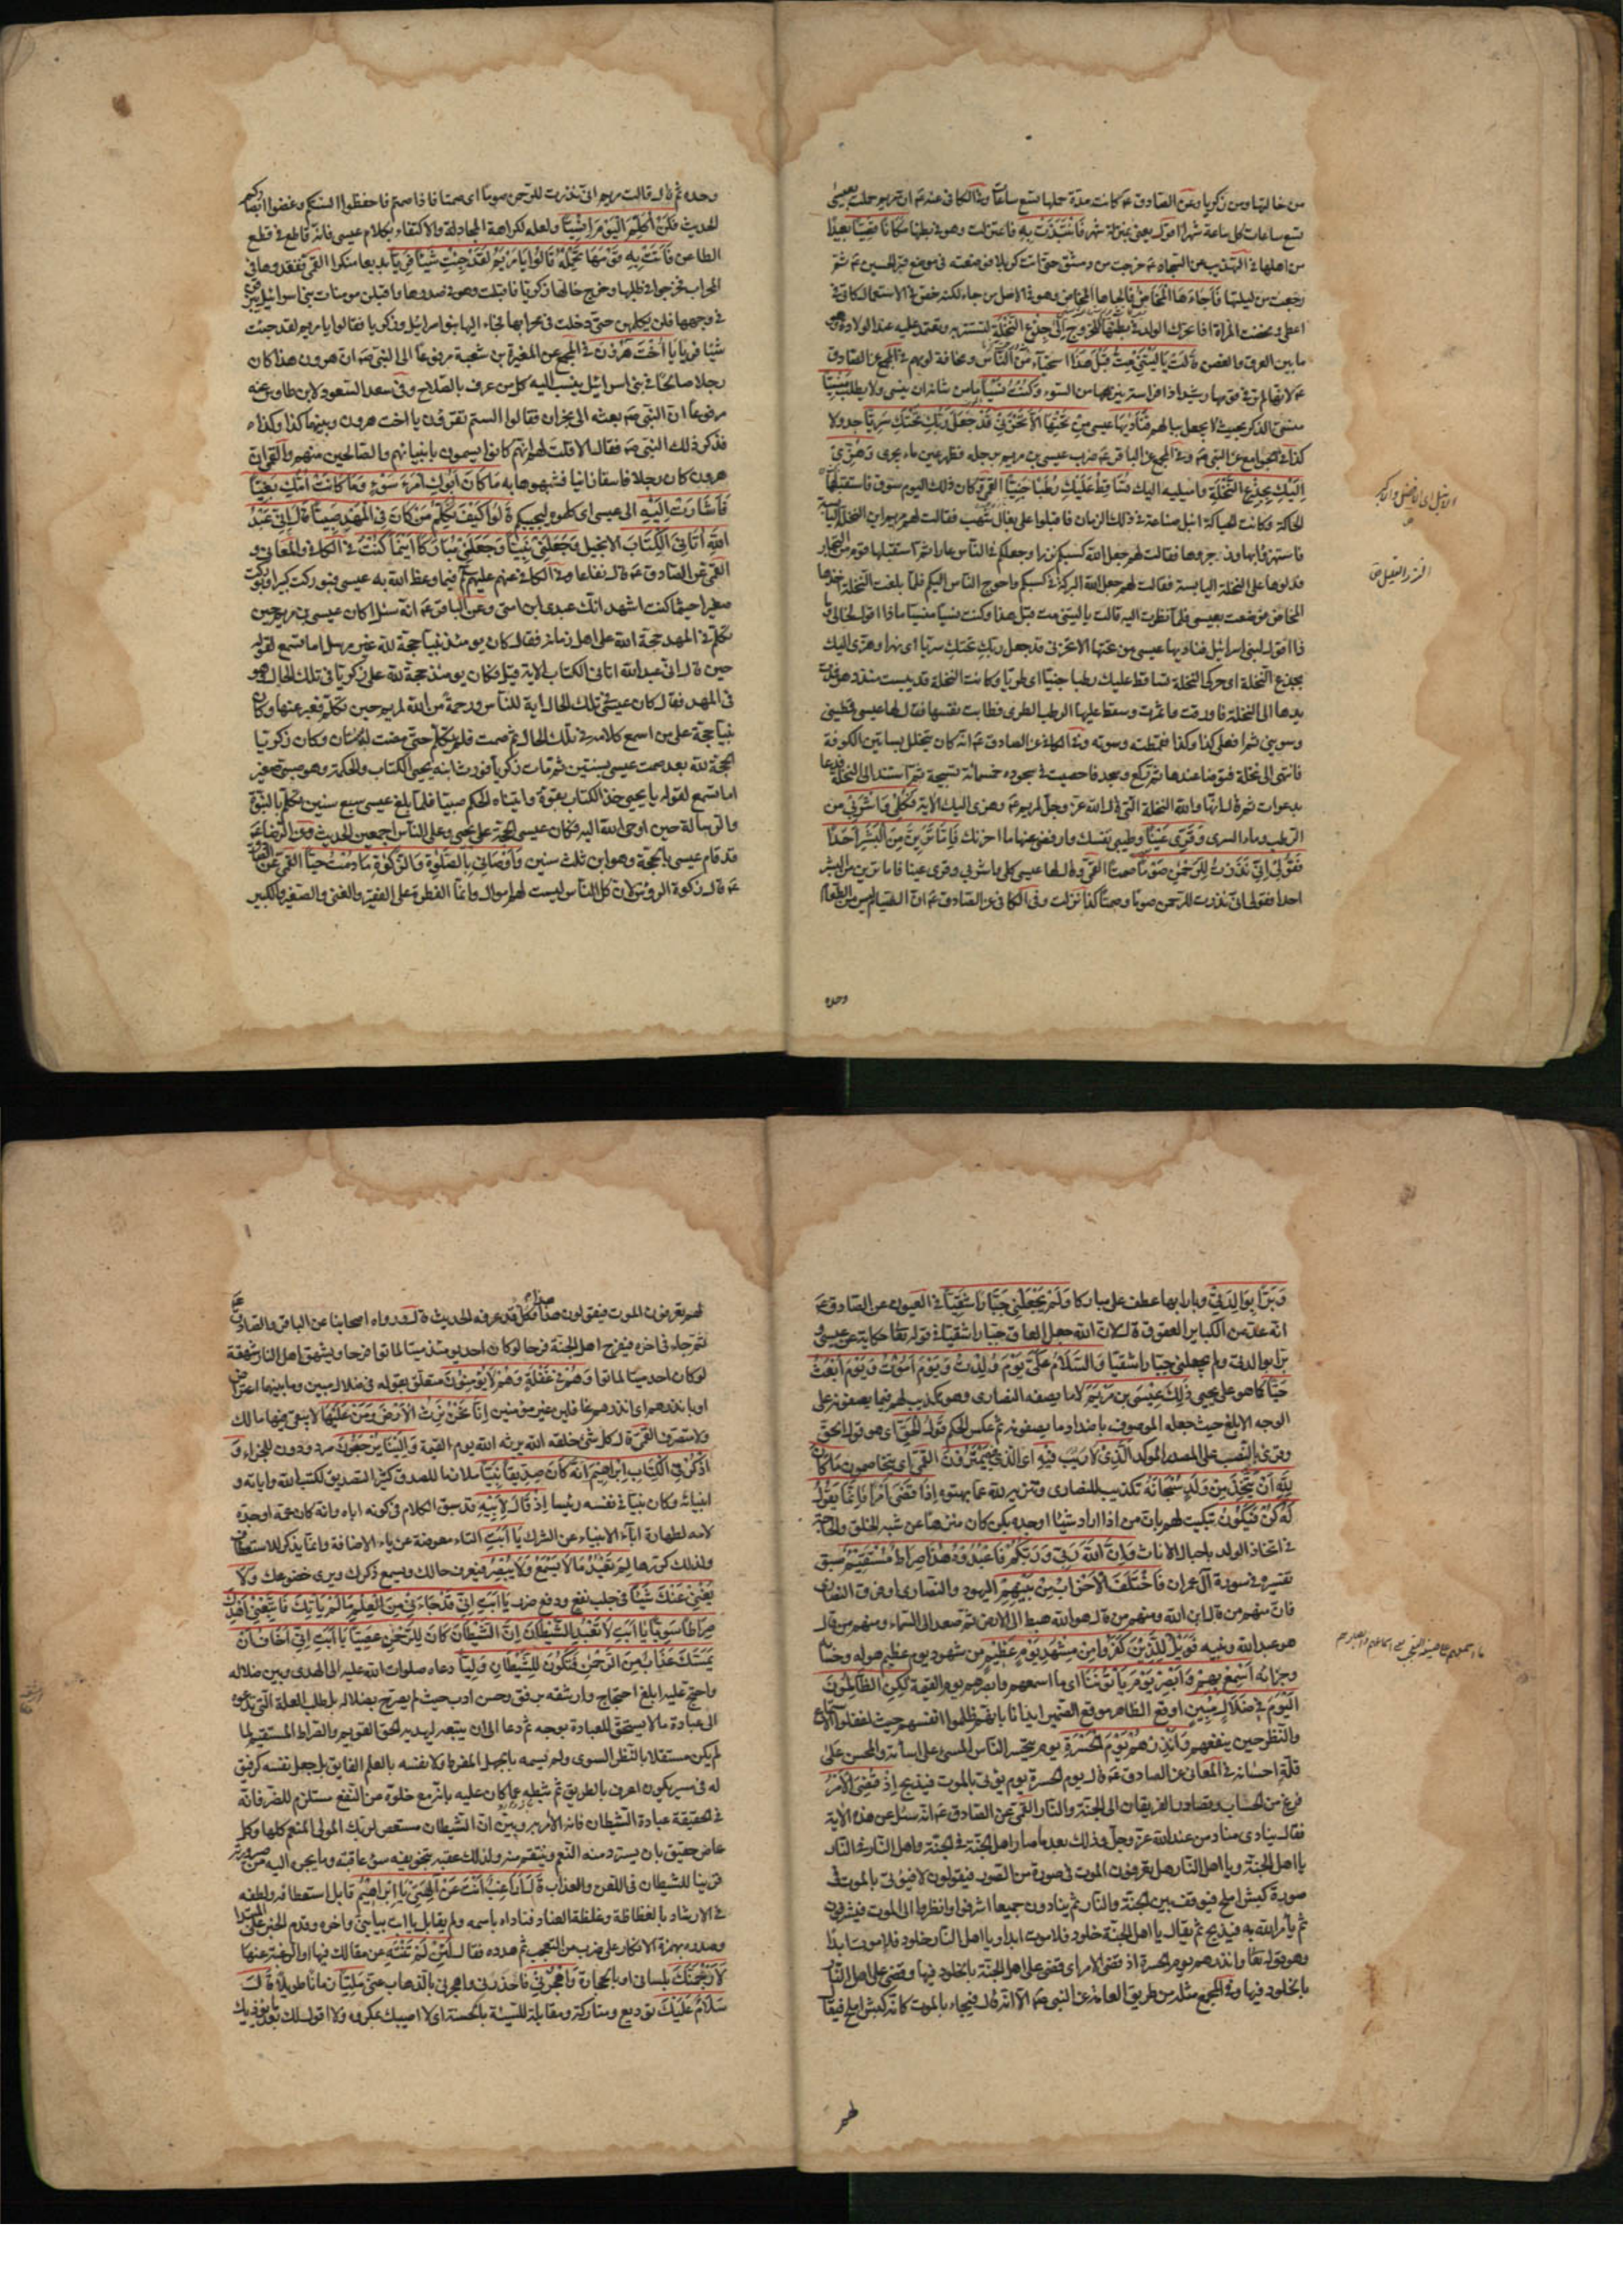 من خالتها ومن زكريا وعن الصادق ع كانت مدة حملها تسع ساعات وفي الكافي عنه ع ان مريم حملت بعيسى
تسع ساعات كل ساعة شهرا اقول يعني بمنزلة شهر فَانْتَبَذَتْ بِهِ فاعتزلت وهو في بطنها مَكَانًا قَصِيًّا بعيدا
من اهلها في التهذيب عن السجاد ع خرجت من دمشق حتى اتت كربلا فوضعته في موضع قبر الحسين ع ثم
رجعت من ليلتها فَأَجَاءَهَا الْمَخَاضُ فالجاها المخاض وهو في الاصل من جاء لكنه خص في الاستعمال كاتى في
اعطى ومخضت المراة اذا تحرك الولد في بطنها للخروج إِلَى جِذْعِ النَّخْلَةِ لتستتر به وتعتمد عليه عند الولادة وهو
ما بين العرق والغصن قَالَتْ يَا لَيْتَنِي مِتُّ قَبْلَ هَذَا استحياء من الناس ومخافة لومهم في المجمع عن الصادق
ع لانها لم تر في قومها رشيدا ذا فراسة ينزهها من السوء وَكُنْتُ نَسْيًا ما من شانه ان ينسى ولا يطلب مَنْسِيًّا
منسي الذكر بحيث لا يخطر ببالهم فَنَادَاهَا عيسى مِنْ تَحْتِهَا أَلَّا تَحْزَنِي قَدْ جَعَلَ رَبُّكِ تَحْتَكِ سَرِيًّا جدولا
كذا في الجوامع عن النبي ص وفي المجمع عن الباقر ع ضرب عيسى بن مريم برجله فظهر عين ماء يجرى وَهُزِّي
إِلَيْكِ بِجِذْعِ النَّخْلَةِ واميليه اليك تُسَاقِطْ عَلَيْكِ رُطَبًا جَنِيًّا القمي وكان ذلك اليوم سوق فاستقبلها
الحاكة وكانت الحياكة انبل صناعة في ذلك الزمان فاقبلوا على بغال شهب فقالت لهم مريم اين النخلة اليابسة
فاستهزؤا بها وزجروها فقالت لهم جعل الله كسبكم نزرا وجعلكم في الناس عارا ثم استقبلها قوم من التجار
فدلوها على النخلة اليابسة فقالت لهم جعل الله البركة في كسبكم واحوج الناس اليكم فلما بلغت النخلة اخذها
المخاض فوضعت بعيسى فلما نظرت اليه قالت يا ليتني مت قبل هذا وكنت نسيا منسيا ماذا اقول لخالي و
ذا اقول لبني اسرائيل فناديها عيسى من تحتها الا تحزني قد جعل ربك تحتك سريا اي نهرا وهزي اليك
بجذع النخلة اي حركي النخلة تساقط عليك رطبا جنيا اي طريا وكانت النخلة قد يبست منذ دهر فمدت
يدها الى النخلة فاورقت واثمرت وسقط عليها الرطب الطري فطابت نفسها فقال لها عيسى قمطيني
وسويني ثم افعلي كذا وكذا فقمطته وسوته وفي الكافي عن الصادق ع انه كان يتخلل بساتين الكوفة
فانتهى الى نخلة فتوضا عندها ثم ركع وسجد فاحصيت في سجوده خمسمائة تسبيحة ثم استند الى النخلة فدعا
بدعوات ثم قال انها والله النخلة التي قال الله عز وجل لمريم ع وهزي اليك الآية فَكُلِي وَاشْرَبِي من
الرطب وماء السري وَقَرِّي عَيْنًا وطيبي نفسك وارفضي عنها ما احزنك فَإِمَّا تَرَيِنَّ مِنَ الْبَشَرِ أَحَدًا
فَقُولِي إِنِّي نَذَرْتُ لِلرَّحْمَنِ صَوْمًا صمتا القمي وقال لها عيسى كلي واشربي وقري عينا فاما ترين من البشر
احدا فقولي اني نذرت للرحمن صوما وصمتا كذا نزلت وفي الكافي عن الصادق ع ان الصيام ليس من الطعام
وحده
وحده ثم قال قالت مريم اني نذرت للرحمن صوما اي صمتا فاذا صمتم فاحفظوا السنتكم وغضوا ابصاركم
الحديث فَلَنْ أُكَلِّمَ الْيَوْمَ إِنْسِيًّا ولعله لكراهة المجادلة والاكتفاء بكلام عيسى فانه قاطع في قطع
الطاعن فَأَتَتْ بِهِ قَوْمَهَا تَحْمِلُهُ قَالُوا يَا مَرْيَمُ لَقَدْ جِئْتِ شَيْئًا فَرِيًّا بديعا منكرا القمي ففقدوها في
المحراب فخرجوا في طلبها وخرج خالها زكريا فاقبلت وهو في صدرها واقبلن مومنات بني اسرائيل يبزقن
في وجهها فلن تكلمهن حتى دخلت في محرابها فجاء اليها بنو اسرائيل وزكريا فقالوا يا مريم لقد جئت
شيئا فريا يَا أُخْتَ هَرُونَ في المجمع عن المغيرة بن شعبة مرفوعا الى النبي ص ان هرون هذا كان
رجلا صالحا في بني اسرائيل ينسب اليه كل من عرف بالصلاح وفي سعد السعود لابن طاوس عنه
مرفوعا ان النبي ص بعثه الى نجران فقالوا الستم تقرؤن يا اخت هرون وبينهما كذا وكذا
فذكر ذلك النبي ص فقال الا قلت لهم انهم كانوا يسمون بانبيائهم والصالحين منهم والقمي ان
هرون كان رجلا فاسقا زانيا فشبهوها به مَا كَانَ أَبُوكِ امْرَأَ سَوْءٍ وَمَا كَانَتْ أُمُّكِ بَغِيًّا
فَأَشَارَتْ إِلَيْهِ الى عيسى اي كلموه ليجيبكم قَالُوا كَيْفَ نُكَلِّمُ مَنْ كَانَ فِي الْمَهْدِ صَبِيًّا قَالَ إِنِّي عَبْدُ
اللَّهِ آتَانِيَ الْكِتَابَ الانجيل وَجَعَلَنِي نَبِيًّا وَجَعَلَنِي مُبَارَكًا أَيْنَمَا كُنْتُ في الكافي والمعاني و
القمي عن الصادق ع قال نفاعا وفي الكافي عنهم عليهم السلم فيما وعظ الله به عيسى فبوركت كبيرا وبوركت
صغيرا حيثما كنت اشهد انك عبدي ابن امتي وعن الباقر ع انه سئل اكان عيسى بن مريم حين
تكلم في المهد حجة الله على اهل زمانه فقال كان يومئذ نبيا حجة لله غير مرسل اما تسمع لقوله
حين قال اني عبد الله اتاني الكتاب الآية قيل فكان يومئذ حجة لله على زكريا في تلك الحال وهو
في المهد فقال كان عيسى في تلك الحال اية للناس ورحمة من الله لمريم حين تكلم فعبر عنها وكان
نبيا حجة على من اسمع كلامه في تلك الحال ثم صمت فلم يتكلم حتى مضت له سنتان وكان زكريا
الحجة لله بعد صمت عيسى بسنتين ثم مات زكريا فورث ابنه يحيى الكتاب والحكمة وهو صبي صغير
اما تسمع لقوله يا يحيى خذ الكتاب بقوة واتيناه الحكم صبيا فلما بلغ عيسى سبع سنين تكلم بالنبوة
والرسالة حين اوحى الله اليه فكان عيسى الحجة على يحيى وعلى الناس اجمعين الحديث وعن الرضا ع
قد قام عيسى بالحجة وهو ابن ثلث سنين وَأَوْصَانِي بِالصَّلَوةِ وَالزَّكَوةِ مَا دُمْتُ حَيًّا القمي عن الصادق
ع قال زكوة الرؤس لان كل الناس ليست لهم اموال وانما الفطرة على الفقير والغني والصغير والكبير
وَبَرًّا بِوَالِدَتِي وبارا بها عطف على مباركا وَلَمْ يَجْعَلْنِي جَبَّارًا شَقِيًّا في العيون عن الصادق ع
انه عد من الكباير العقوق قال لان الله جعل العاق جبارا شقيا في قوله تعا حكاية عن عيسى و
برا بوالدتي ولم يجعلني جبارا شقيا وَالسَّلَامُ عَلَيَّ يَوْمَ وُلِدْتُ وَيَوْمَ أَمُوتُ وَيَوْمَ أُبْعَثُ
حَيًّا كما هو على يحيى ذَلِكَ عِيسَى بْن مَرْيَمَ لا ما يصفه النصارى وهو تكذيب لهم فيما يصفونه على
الوجه الابلغ حيث جعله الموصوف باضداد ما يصفونه ثم عكس الحكم قَوْلُ الْحَقِّ اي هو قول الحق
وقرئ بالنصب على المصدر المؤكد الَّذِي لا ريب فيه اي الَّذِي فِيهِ يَمْتَرُونَ القمي اي يتخاصمون مَا كَانَ
لِلَّهِ أَنْ يَتَّخِذَ مِنْ وَلَدٍ سُبْحَانَهُ تكذيب للنصارى وتنزيه لله عما بهتوه إِذَا قَضَى أَمْرًا فَإِنَّمَا يَقُولُ
لَهُ كُنْ فَيَكُونُ تبكيت لهم بان من اذا اراد شيئا اوجده بكن كان منزها عن شبه الخلق والحاجة
في اتخاذ الولد باحبال الاناث وَإِنَّ اللَّهَ رَبِّي وَرَبُّكُمْ فَاعْبُدُوهُ هَذَا صِرَاطٌ مُسْتَقِيمٌ سبق
تفسيره في سورة آل عمران فَاخْتَلَفَ الْأَحْزَابُ مِنْ بَيْنِهِمْ اليهود والنصارى او فرق النصارى
فان منهم من قال ابن الله ومنهم من قال هو الله هبط الى الارض ثم صعد الى السماء ومنهم من قال
هو عبد الله ونبيه فَوَيْلٌ لِلَّذِينَ كَفَرُوا مِنْ مَشْهَدِ يَوْمٍ عَظِيمٍ من شهود يوم عظيم هوله وحسابه
وجزاؤه أَسْمِعْ بِهِمْ وَأَبْصِرْ يَوْمَ يَأْتُونَنَا اي ما اسمعهم وابصرهم يوم القيمة لَكِنِ الظَّالِمُونَ
الْيَوْمَ فِي ضَلَالٍ مُبِينٍ اوقع الظاهر موقع الضمير ايذانا بانهم ظلموا انفسهم حيث اغفلوا الاستماع
والنظر حين ينفعهم وَأَنْذِرْهُمْ يَوْمَ الْحَسْرَةِ يوم يتحسر الناس المسيء على اساءته والمحسن على
قلة احسانه في المعاني عن الصادق ع قال يوم الحسرة يوم يؤتى بالموت فيذبح إِذْ قُضِيَ الْأَمْرُ
فرغ من الحساب وتصادر الفريقان الى الجنة والنار القمي عن الصادق ع انه سئل عن هذه الآية
فقال ينادي مناد من عند الله عز وجل وذلك بعد ما صار اهل الجنة في الجنة واهل النار في النار
يا اهل الجنة ويا اهل النار هل تعرفون الموت في صورة من الصور فيقولون لا فيؤتى بالموت في
صورة كبش املح فيوقف بين الجنة والنار ثم ينادون جميعا اشرفوا وانظروا الى الموت فيشرفون
ثم يأمر الله به فيذبح ثم يقال يا اهل الجنة خلود فلا موت ابدا ويا اهل النار خلود فلا موت ابدا
وهو قوله تعا وانذرهم يوم الحسرة اذ قضي الامر اي قضي على اهل الجنة بالخلود فيها وقضي على اهل النار
بالخلود فيها وفي المجمع مثله من طريق العامة عن النبي ص الا انه قال فيجاء بالموت كانه كبش املح فيقال
لهم
لهم تعرفون الموت فيقولون هذا هذا وكل قد عرفه الحديث قال ورواه اصحابنا عن الباقر والصادق ع
ثم جاء في اخره فيفرح اهل الجنة فرحا لو كان احد يومئذ ميتا لماتوا فرحا ويشهق اهل النار شهقة
لو كان احد ميتا لماتوا وَهُمْ فِي غَفْلَةٍ وَهُمْ لَا يُؤْمِنُونَ متعلق بقوله في ضلال مبين وما بينهما اعتراض
او بانذرهم اي انذرهم غافلين غير مؤمنين إِنَّا نَحْنُ نَرِثُ الْأَرْضَ وَمَنْ عَلَيْهَا لا يبقى فيها مالك
ولا متصرف القمي قال كل شيء خلقه الله يرثه الله يوم القيمة وَإِلَيْنَا يُرْجَعُونَ مردودون للجزاء وَ
اذْكُرْ فِي الْكِتَابِ إِبْرَاهِيمَ إِنَّهُ كَانَ صِدِّيقًا نَبِيًّا ملازما للصدق كثير التصديق لكتب الله واياته و
انبيائه وكان نبيا في نفسه رئيسا إِذْ قَالَ لِأَبِيهِ قد سبق الكلام في كونه اباه وانه كان عمه او جده
لامه لطهارة آباء الانبياء عن الشرك يَا أَبَتِ التاء معوضة عن ياء الاضافة وانما يذكر للاستعطاف
ولذلك كررها لِمَ تَعْبُدُ مَا لَا يَسْمَعُ وَلَا يُبْصِرُ فيعرف حالك ويسمع ذكرك ويرى خضوعك وَلَا
يُغْنِي عَنْكَ شَيْئًا في جلب نفع ودفع ضر يَا أَبَتِ إِنِّي قَدْ جَاءَنِي مِنَ الْعِلْمِ مَا لَمْ يَأْتِكَ فَاتَّبِعْنِي أَهْدِكَ
صِرَاطًا سَوِيًّا يَا أَبَتِ لَا تَعْبُدِ الشَّيْطَانَ إِنَّ الشَّيْطَانَ كَانَ لِلرَّحْمَنِ عَصِيًّا يَا أَبَتِ إِنِّي أَخَافُ أَنْ
يَمَسَّكَ عَذَابٌ مِنَ الرَّحْمَنِ فَتَكُونَ لِلشَّيْطَانِ وَلِيًّا دعاه صلوات الله عليه الى الهدى وبين ضلاله
واحتج عليه ابلغ احتجاج وارشقه برفق وحسن ادب حيث لم يصرح بضلاله بل طلب العلة التي تدعوه
الى عبادة ما لا يستحق للعبادة بوجه ثم دعا الى ان يتبعه ليهديه الحق القويم والصراط المستقيم لما
لم يكن مستقلا بالنظر السوي ولم يسمه بالجهل المفرط ولا نفسه بالعلم الفايق بل جعل نفسه كرفيق
له في مسير يكون اعرف بالطريق ثم ثبطه عما كان عليه بانه مع خلوه من النفع مستلزم للضر فانه
في الحقيقة عبادة الشيطان فانه الآمر به وبين ان الشيطان مستعص لربك المولي المنعم كلها وكل
عاص حقيق بان يسترد منه النعم وينتقم منه ولذلك عقبه بتخويفه سوء عاقبته وما يجر اليه من صيرورته
قرينا للشيطان في اللعن والعذاب قَالَ أَرَاغِبٌ أَنْتَ عَنْ آلِهَتِي يَا إِبْرَاهِيمُ قابل استعطافه ولطفه
في الارشاد بالفظاظة وغلظة العناد فناداه باسمه ولم يقابل يا ابت بيا بني واخره وقدم الخبر على المبتدا
وصدره بهمزة الانكار على ضرب من التعجب ثم هدده فقال لَئِنْ لَمْ تَنْتَهِ عن مقالك فيها او الرغبة عنها
لَأَرْجُمَنَّكَ بلساني او بالحجارة وَاهْجُرْنِي فاحذرني واهجرني بالذهاب عني مَلِيًّا زمانا طويلا قَالَ
سَلَامٌ عَلَيْكَ توديع ومتاركة ومقابلة للسيئة بالحسنة اي لا اصيبك بمكروه ولا اقول لك بعد ما يؤذيك